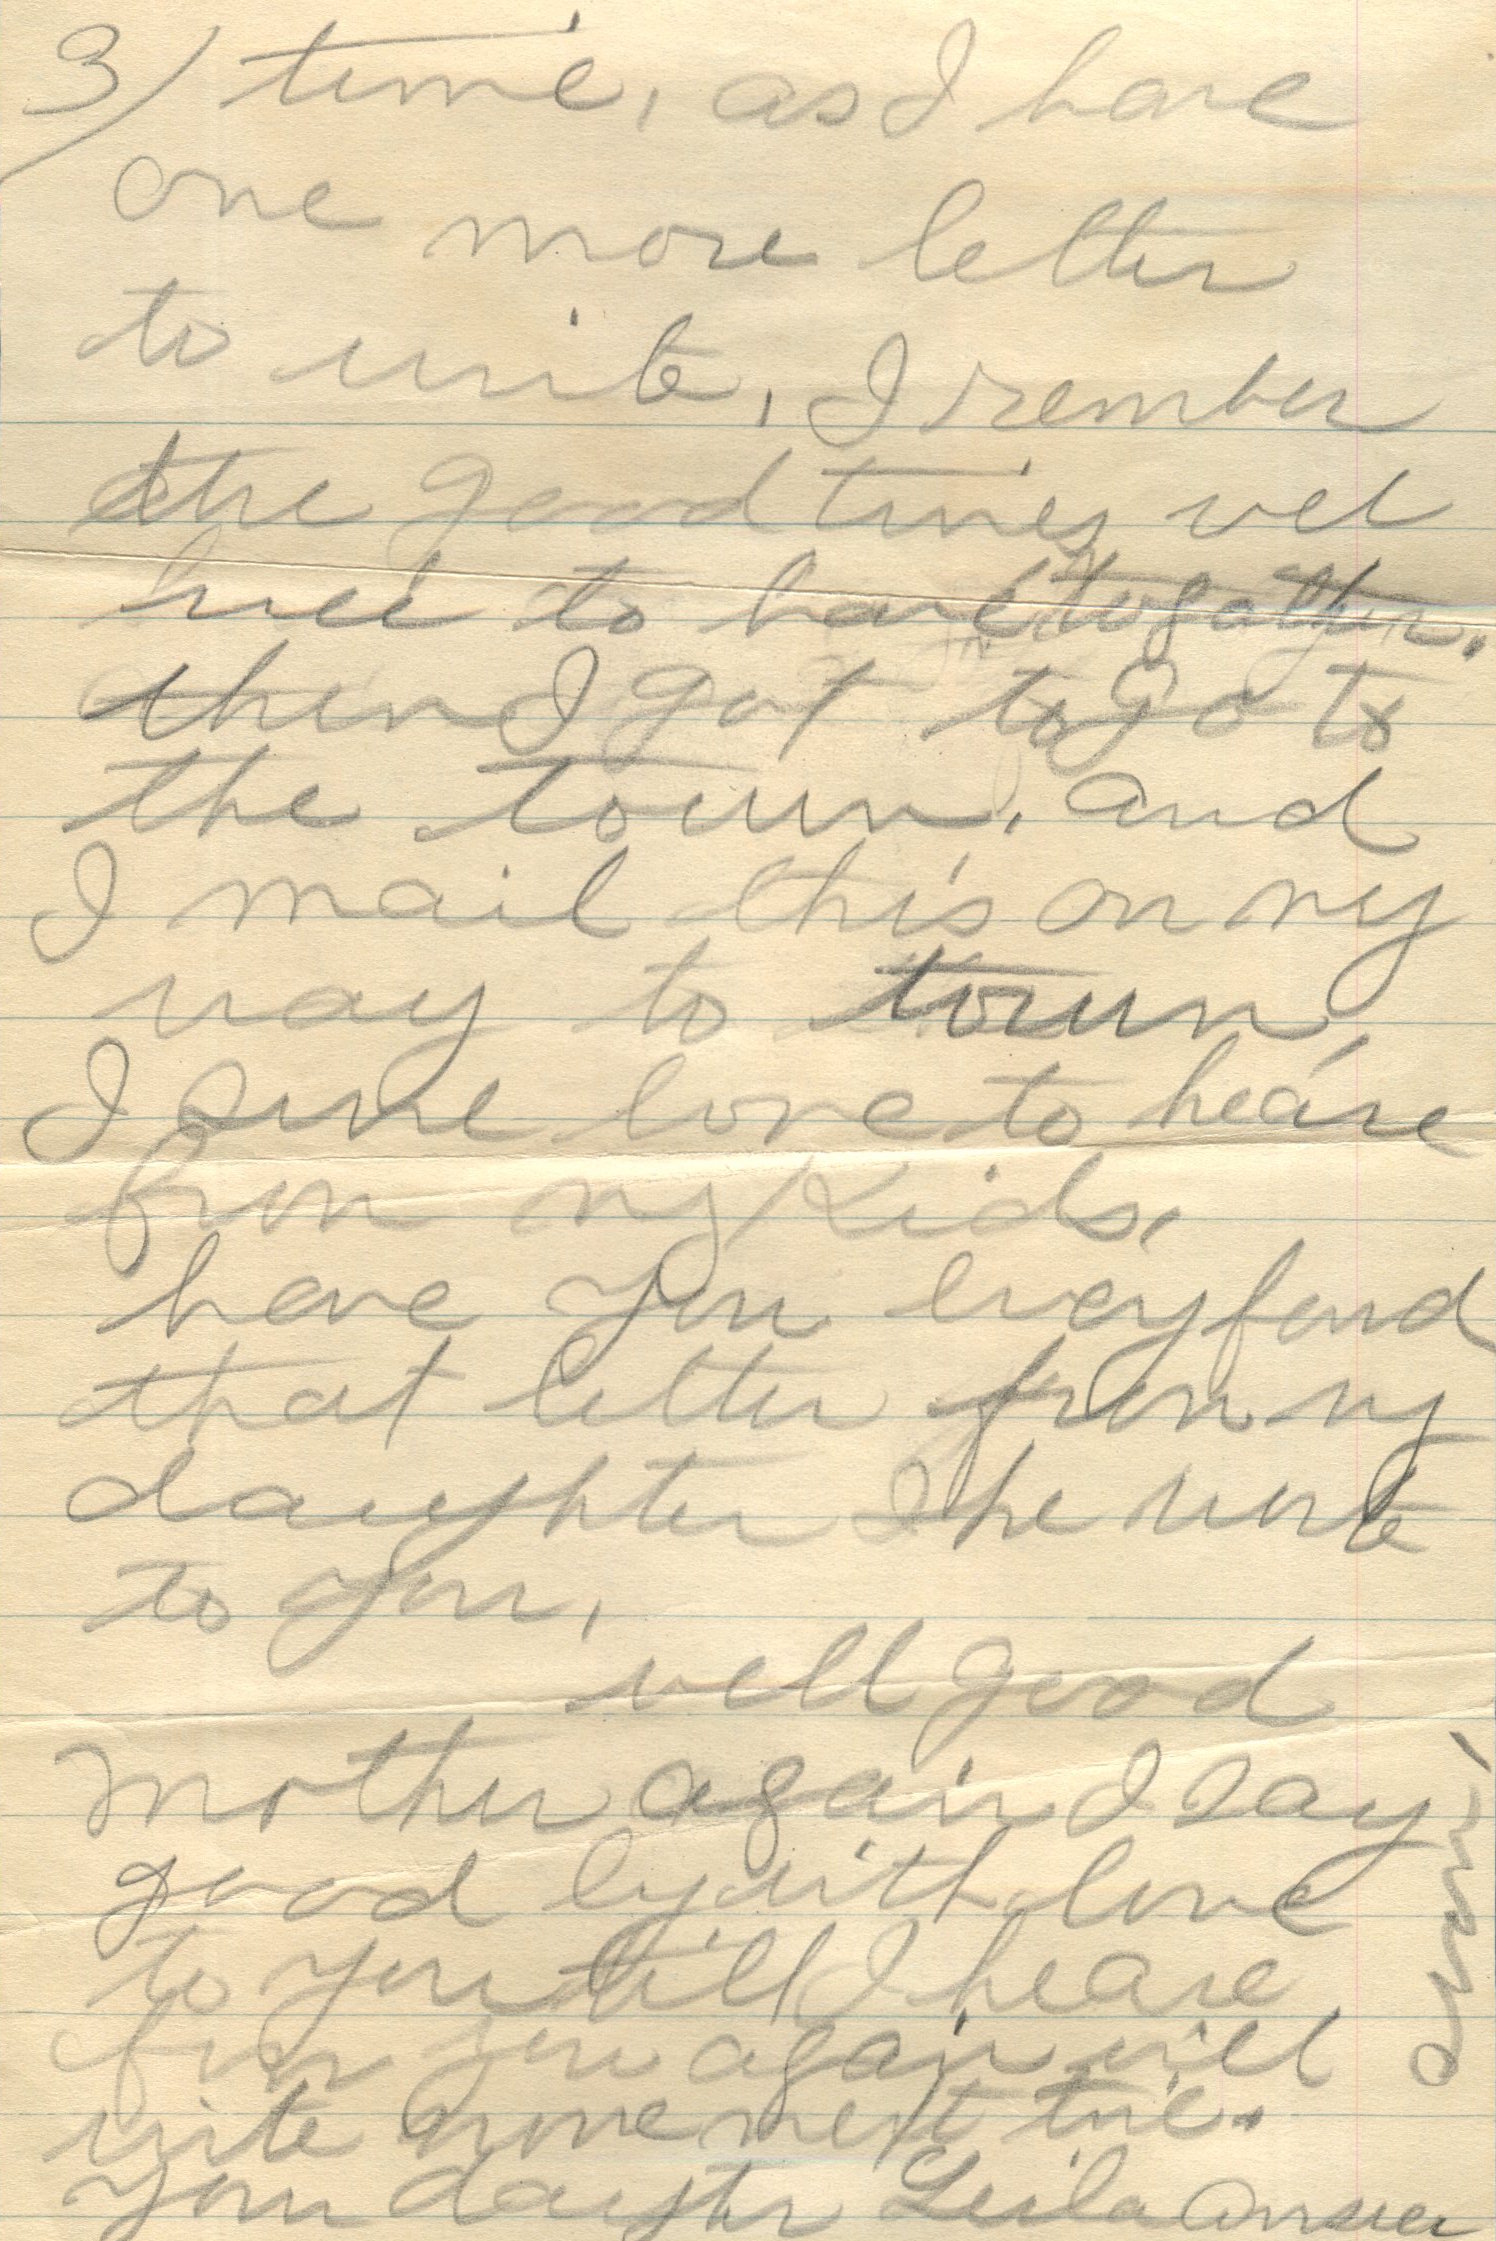 3) time, as I have
one more letter
to write, I rember
the good times wee
use to have togather.
then I got to go to
the town. and
I mail this on my
way to town
I sure love to heare
from my Kids,
have you every found
that letter from my
daughter She wrote
to you,
well good
mother again I say
good by with love
to you till I heare
from you again will
write more next time.
you daughter Leila Answer